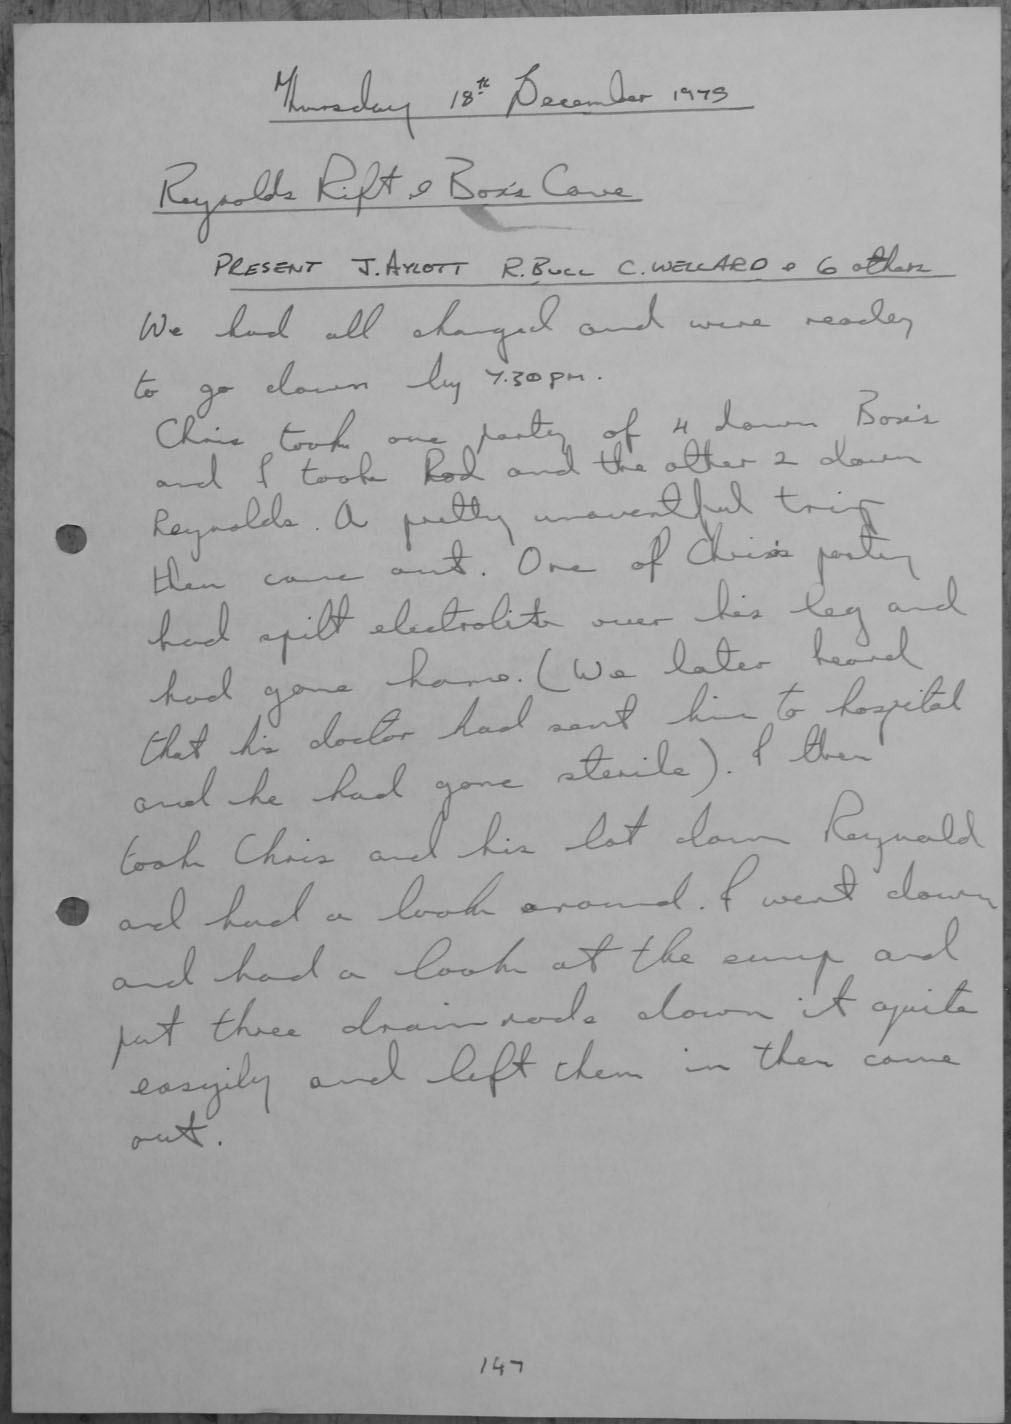 Thursday 18th December 1975
Reynolds Rift & Box's Cave
PRESENT J. AYLOTT R. BULL C. WELLARD & 6 others
We had all changed and were ready
to go down by 7.30pm.
Chris took one party of 4 down Box's
and I took Rod and the other 2 down
Reynolds. A pretty unaventful trip
then came out. One of Chris's party
had spilt electrolite over his leg and
had gone home. (We later heard
that his doctor had sent him to hospital
and he had gone sterile). I then
took Chris and his lot down Reynolds
and had a look around. I went down
and had a look at the sump and
put three drain rods down it quite
easyily and left them in then came
out.
147